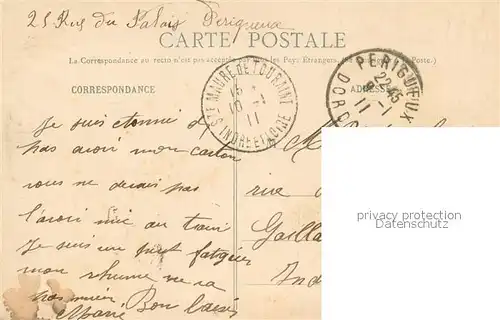 25 Rue du Palais Perigueux
CARTE POSTALE
La Correspondance au recto n'est pas acceptée par tous les Pays Étrangers. (Se renseigner à la Poste.)
CORRESPONDANCE
ADRESSE
STE MAURE DE TOURAINE
15
10 -1
11
INDRE ET LOIRE
PERIGUEUX
22 45
9 -1
11
DORDO
Je suis etonné de
pas avoir mon carton
vous ne devais pas
l'avoir mis au train
Je suis un peut fatiguer
mon rhume ne va
pas mieux. Bon baisés
Marie
M
rue
Gailla
Ind
privacy protection
Datenschutz